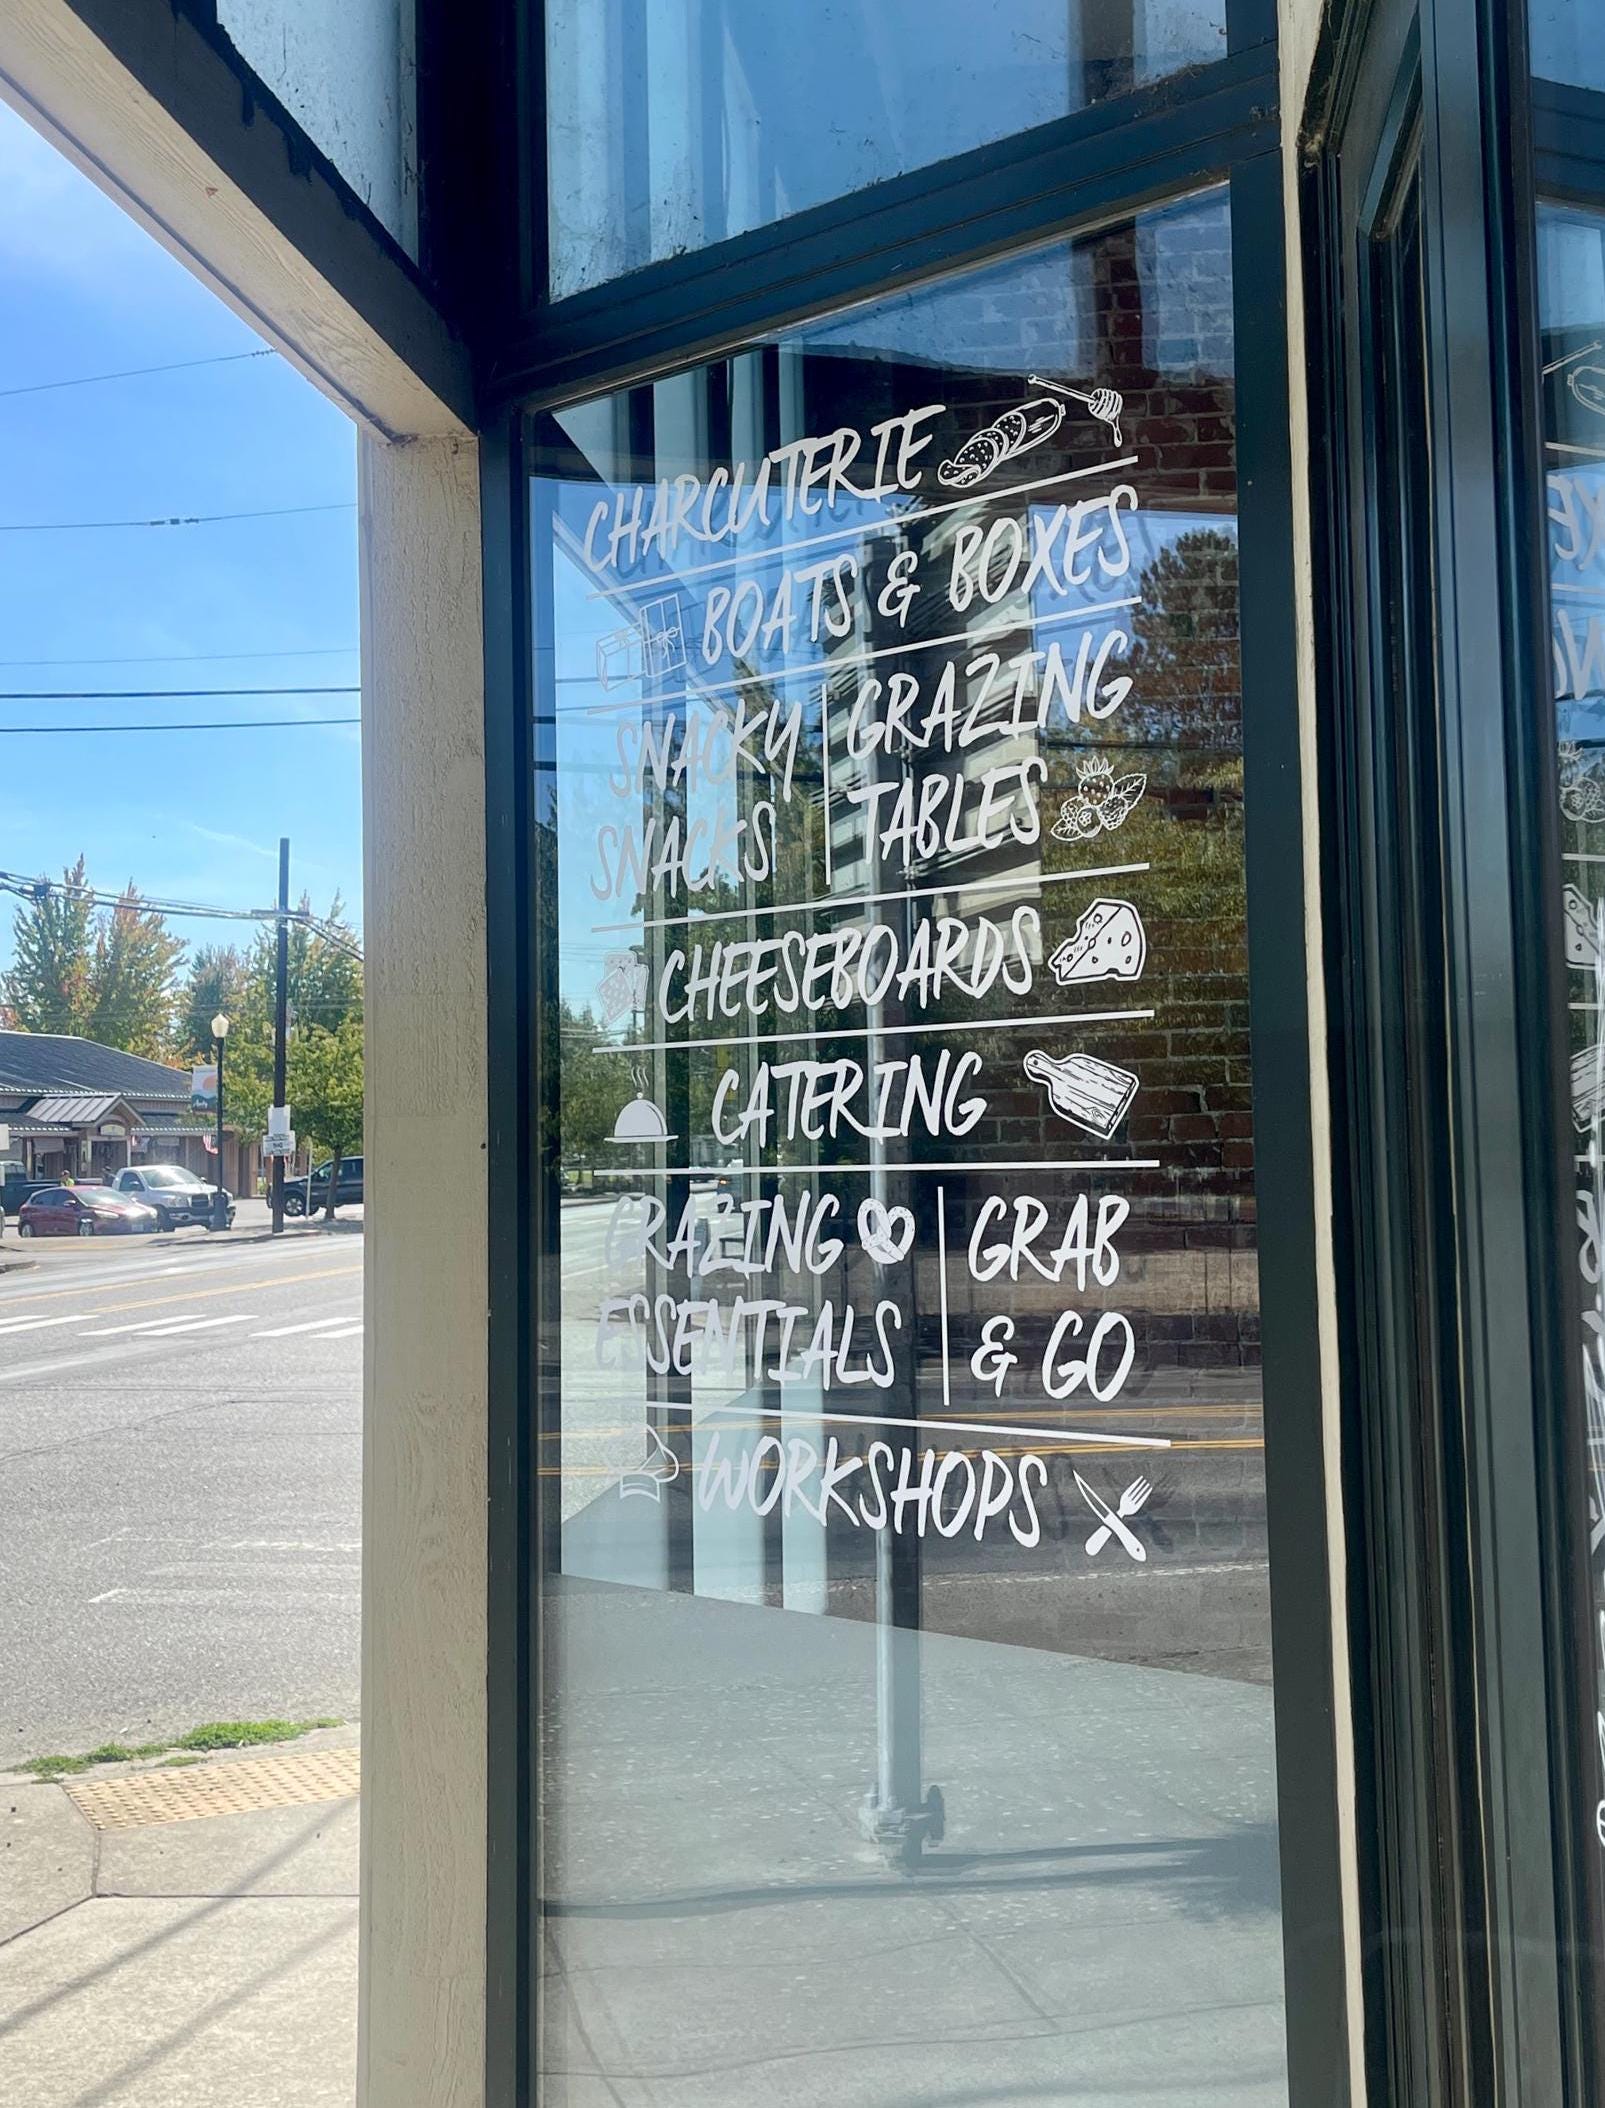 CHARCUTERIE
BOATS & BOXES
SNACKY
SNACKS
GRAZING
TABLES
CHEESEBOARDS
CATERING
GRAZING
ESSENTIALS
GRAB
& GO
WORKSHOPS